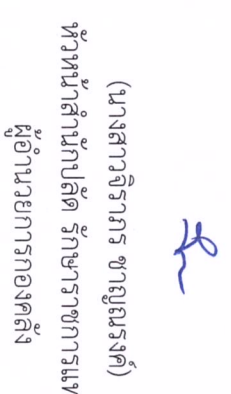 (นางสาวจิราภร ชาญณรงค์)
หัวหน้าสำนักปลัด รักษาราชการแทน
ผู้อำนวยการกองคลัง